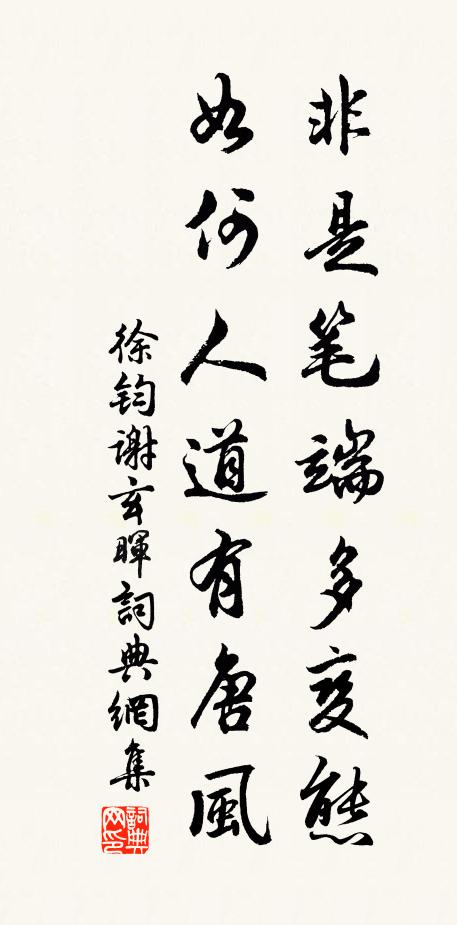 非是笔端多变態
如何人道有唐風
徐钧谢玄暉詞典網集
詞典网印